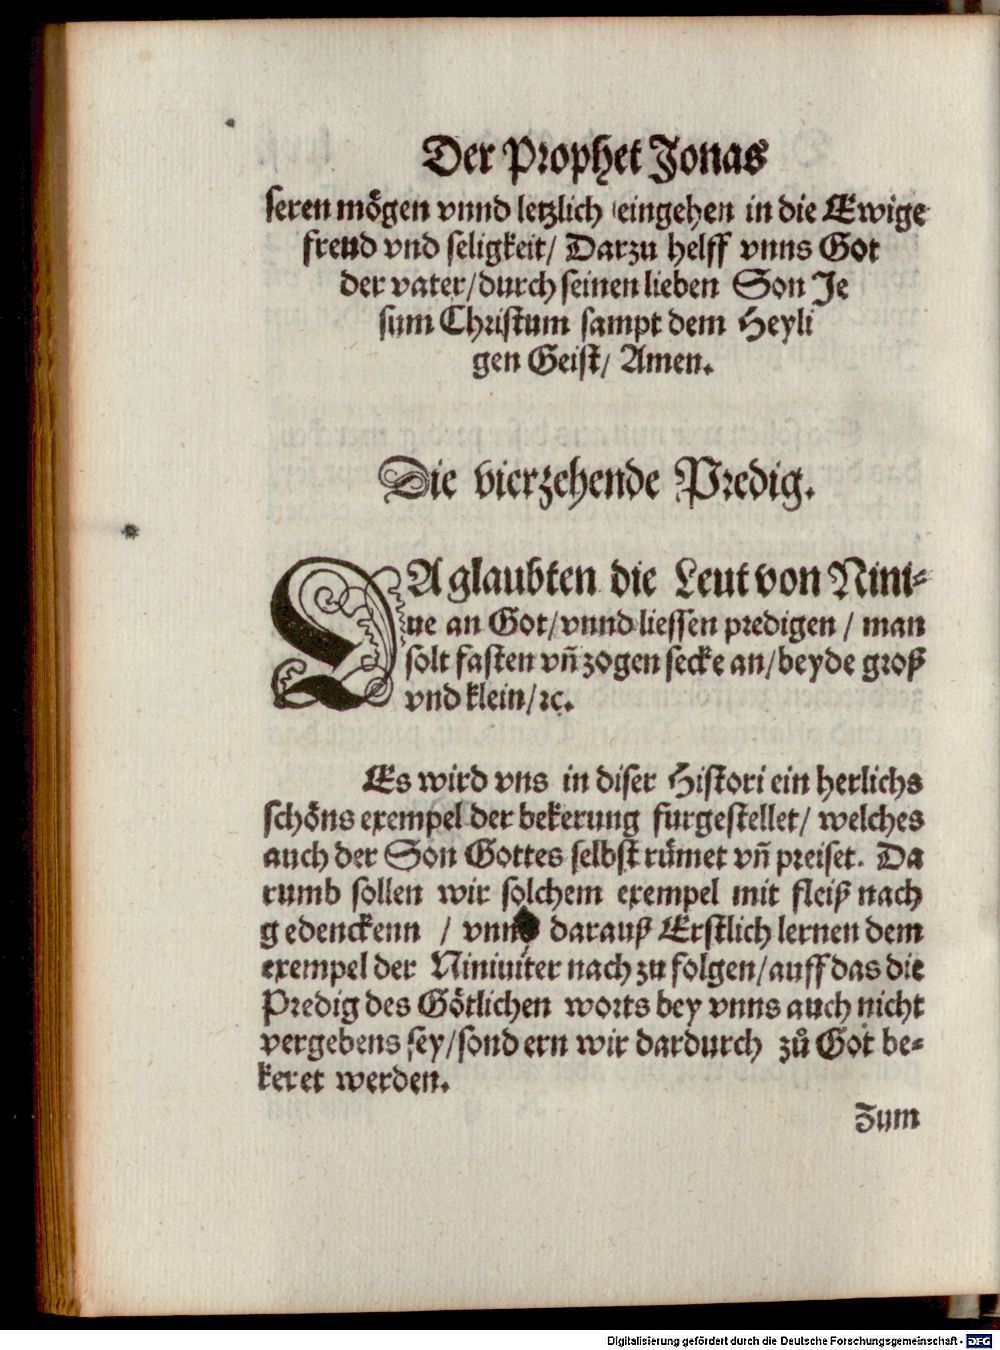 Der Prophet Jonas
seren mögen vnnd letzlich eingehen in die Ewige
freud vnd seligkeit/ Darzu helff vnns Got
der vater/durch seinen lieben Son Je
sum Christum sampt dem Heyli
gen Geist/ Amen.
Die vierzehende Predig.
DA glaubten die Leut von Nini-
ue an Got/vnnd liessen predigen / man
solt fasten vñ zogen secke an/beyde groß
vnd klein/ꝛc.
Es wird vns in diser Histori ein herlichs
schöns exempel der bekerung furgestellet/ welches
auch der Son Gottes selbst rümet vñ preiset. Da
rumb sollen wir solchem exempel mit fleiß nach
gedenckenn / vnnd darauß Erstlich lernen dem
exempel der Niniuiter nach zu folgen/auff das die
Predig des Götlichen worts bey vnns auch nicht
vergebens sey/sondern wir dardurch zů Got be-
keret werden.
Zum
Digitalisierung gefördert durch die Deutsche Forschungsgemeinschaft - DFG